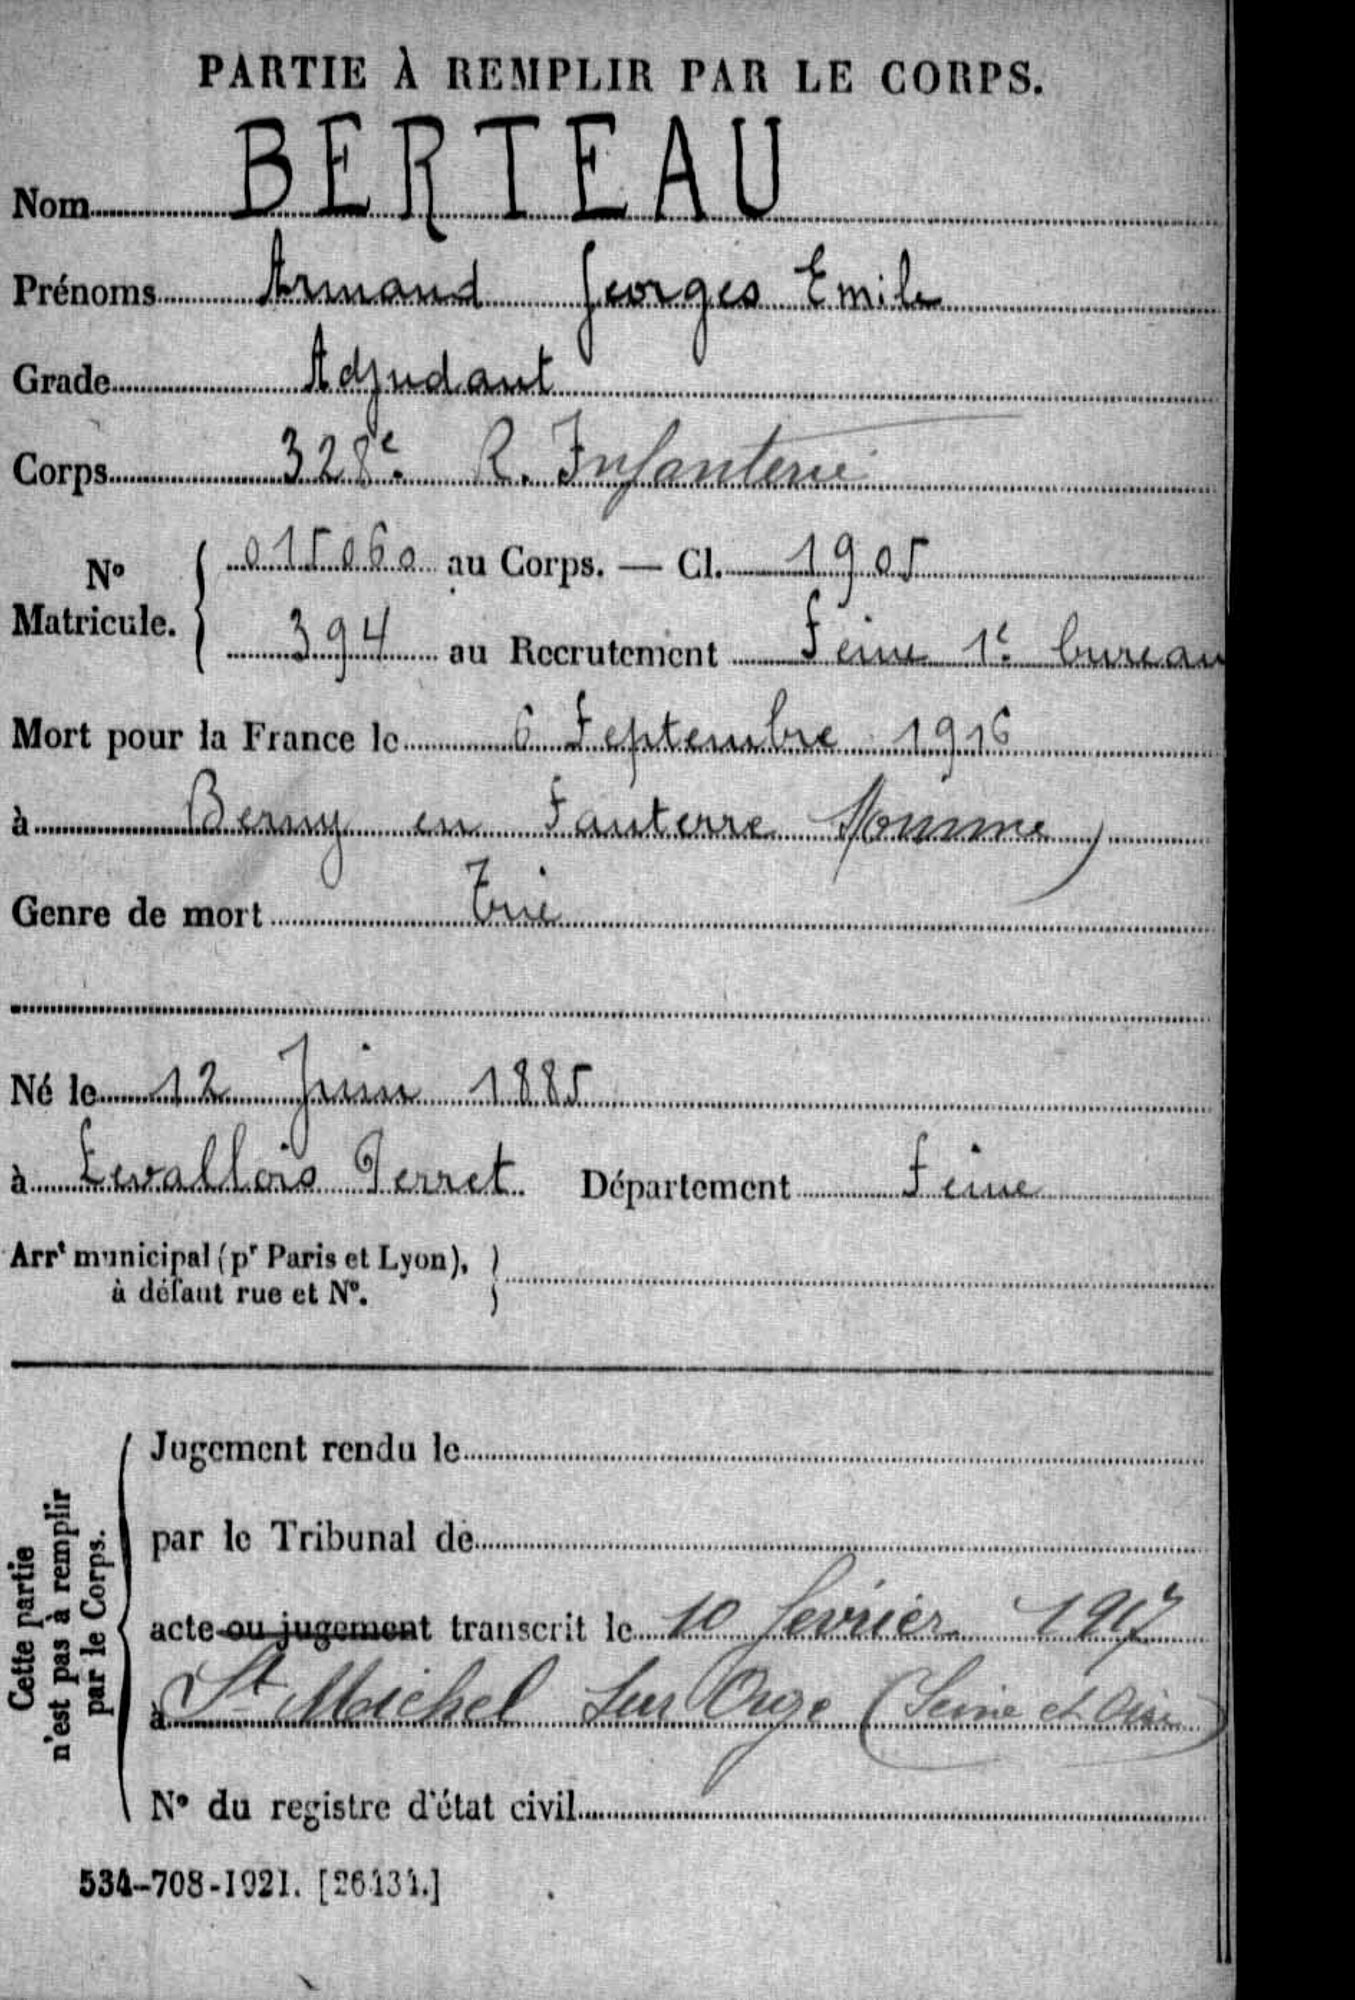 PARTIE À REMPLIR PAR LE CORPS.
Nom BERTEAU
Prénoms Armand Georges Emile
Grade Adjudant
Corps 328e R. Infanterie
No Matricule. 015060 au Corps. — Cl. 1905
394 au Recrutement Seine 1e bureau
Mort pour la France le 6 Septembre 1916
à Berny en Santerre Somme
Genre de mort Tué
Né le 12 Juin 1885
à Levallois Perret. Département Seine
Arrt municipal (pr Paris et Lyon),
à défaut rue et No.
Cette partie
n'est pas à remplir
par le Corps.
Jugement rendu le
par le Tribunal de
acte ou jugement transcrit le 10 février 1917
à St Michel sur Orge (Seine et Oise)
No du registre d'état civil
534-708-1921. [26434.]